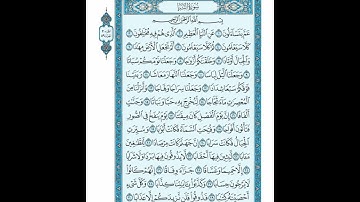 سُورَةُ النَّبَإِ
بِسْمِ اللَّهِ الرَّحْمَٰنِ الرَّحِيمِ
عَمَّ يَتَسَاءَلُونَ ١ عَنِ النَّبَإِ الْعَظِيمِ ٢ الَّذِي هُمْ فِيهِ مُخْتَلِفُونَ ٣
كَلَّا سَيَعْلَمُونَ ٤ ثُمَّ كَلَّا سَيَعْلَمُونَ ٥ أَلَمْ نَجْعَلِ الْأَرْضَ مِهَادًا ٦
وَالْجِبَالَ أَوْتَادًا ٧ وَخَلَقْنَاكُمْ أَزْوَاجًا ٨ وَجَعَلْنَا نَوْمَكُمْ سُبَاتًا ٩
وَجَعَلْنَا اللَّيْلَ لِبَاسًا ١٠ وَجَعَلْنَا النَّهَارَ مَعَاشًا ١١ وَبَنَيْنَا
فَوْقَكُمْ سَبْعًا شِدَادًا ١٢ وَجَعَلْنَا سِرَاجًا وَهَّاجًا ١٣ وَأَنزَلْنَا مِنَ
الْمُعْصِرَاتِ مَاءً ثَجَّاجًا ١٤ لِّنُخْرِجَ بِهِ حَبًّا وَنَبَاتًا ١٥ وَجَنَّاتٍ
أَلْفَافًا ١٦ إِنَّ يَوْمَ الْفَصْلِ كَانَ مِيقَاتًا ١٧ يَوْمَ يُنفَخُ فِي الصُّورِ
فَتَأْتُونَ أَفْوَاجًا ١٨ وَفُتِحَتِ السَّمَاءُ فَكَانَتْ أَبْوَابًا ١٩ وَسُيِّرَتِ
الْجِبَالُ فَكَانَتْ سَرَابًا ٢٠ إِنَّ جَهَنَّمَ كَانَتْ مِرْصَادًا ٢١ لِّلطَّاغِينَ
مَآبًا ٢٢ لَّابِثِينَ فِيهَا أَحْقَابًا ٢٣ لَّا يَذُوقُونَ فِيهَا بَرْدًا وَلَا شَرَابًا ٢٤
إِلَّا حَمِيمًا وَغَسَّاقًا ٢٥ جَزَاءً وِفَاقًا ٢٦ إِنَّهُمْ كَانُوا
لَا يَرْجُونَ حِسَابًا ٢٧ وَكَذَّبُوا بِآيَاتِنَا كِذَّابًا ٢٨ وَكُلَّ شَيْءٍ
أَحْصَيْنَاهُ كِتَابًا ٢٩ فَذُوقُوا فَلَن نَّزِيدَكُمْ إِلَّا عَذَابًا ٣٠